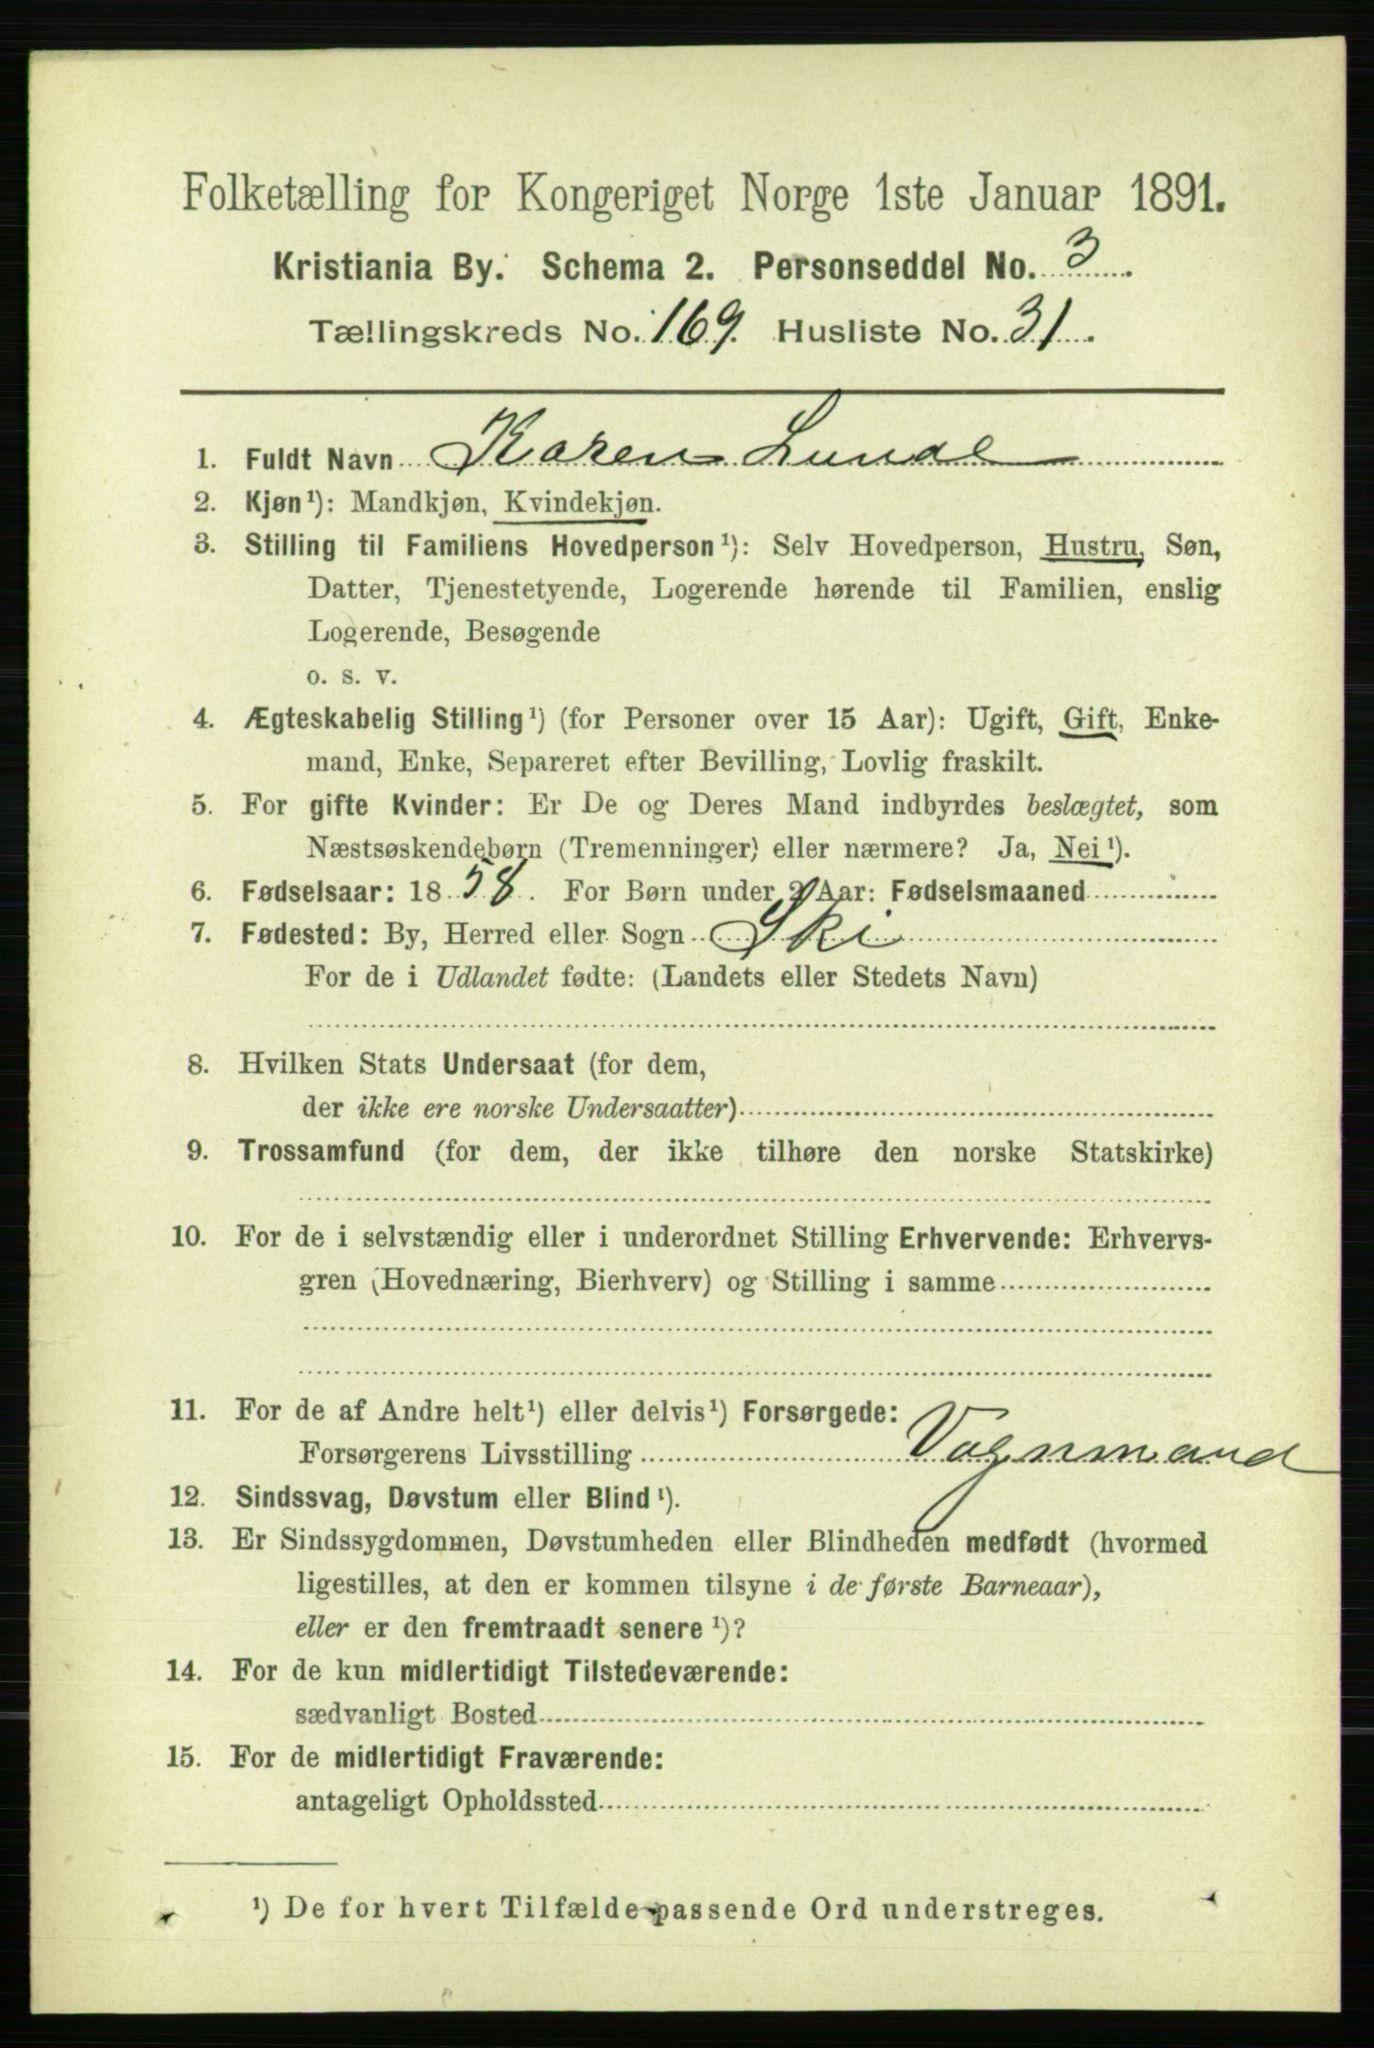 Folketælling for Kongeriget Norge 1ste Januar 1891.
Kristiania By. Schema 2. Personseddel No. 3
Tællingskreds No. 169. Husliste No. 31.
1. Fuldt Navn Karen Lunde
2. Kjøn¹): Mandkjøn, Kvindekjøn.
3. Stilling til Familiens Hovedperson¹): Selv Hovedperson, Hustru, Søn,
Datter, Tjenestetyende, Logerende hørende til Familien, enslig
Logerende, Besøgende
o. s. v.
4. Ægteskabelig Stilling¹) (for Personer over 15 Aar): Ugift, Gift, Enke-
mand, Enke, Separeret efter Bevilling, Lovlig fraskilt.
5. For gifte Kvinder: Er De og Deres Mand indbyrdes beslægtet, som
Næstsøskendebørn (Tremenninger) eller nærmere? Ja, Nei¹).
6. Fødselsaar: 1858. For Børn under 2 Aar: Fødselsmaaned
7. Fødested: By, Herred eller Sogn Ski
For de i Udlandet fødte: (Landets eller Stedets Navn)
8. Hvilken Stats Undersaat (for dem,
der ikke ere norske Undersaatter)
9. Trossamfund (for dem, der ikke tilhøre den norske Statskirke)
10. For de i selvstændig eller i underordnet Stilling Erhvervende: Erhvervs-
gren (Hovednæring, Bierhverv) og Stilling i samme
11. For de af Andre helt¹) eller delvis¹) Forsørgede:
Forsørgerens Livsstilling Vognmand
12. Sindssvag, Døvstum eller Blind¹).
13. Er Sindssygdommen, Døvstumheden eller Blindheden medfødt (hvormed
ligestilles, at den er kommen tilsyne i de første Barneaar),
eller er den fremtraadt senere¹)?
14. For de kun midlertidigt Tilstedeværende:
sædvanligt Bosted
15. For de midlertidigt Fraværende:
antageligt Opholdssted
¹) De for hvert Tilfælde passende Ord understreges.